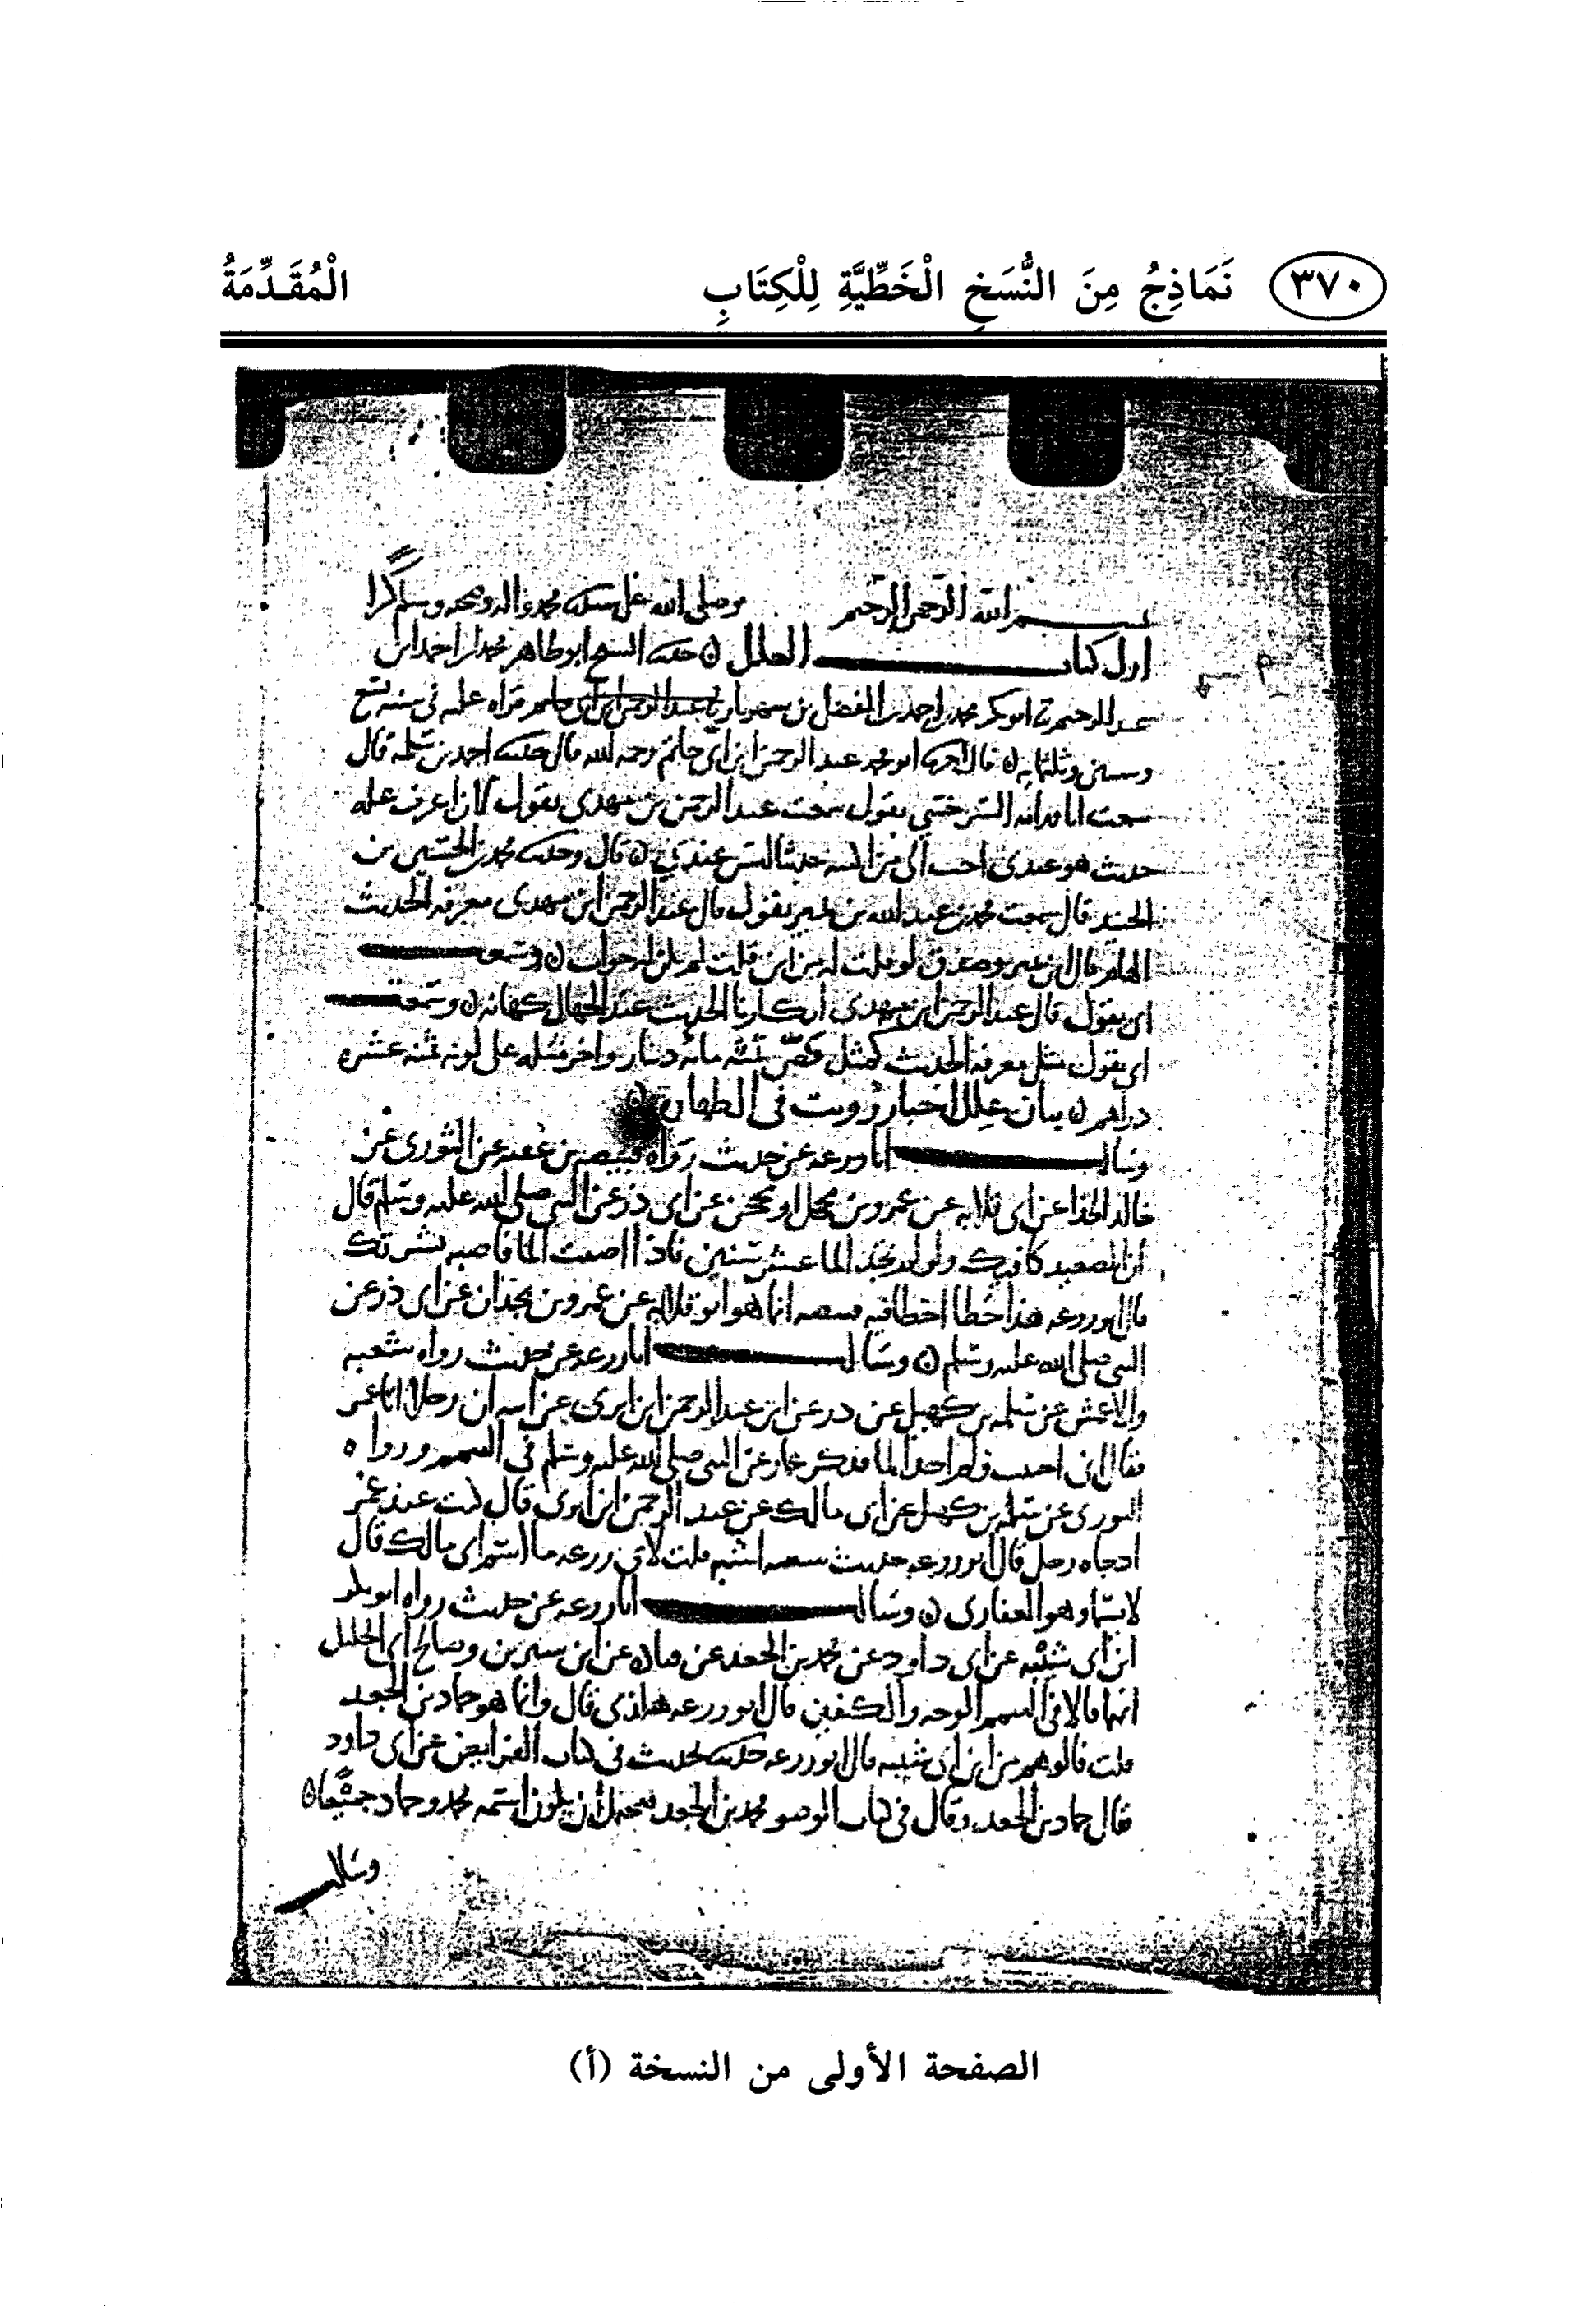 ٣٧٠ نَمَاذِجُ مِنَ النُّسَخِ الْخَطِّيَّةِ لِلْكِتَابِ الْمُقَدِّمَةُ
بسم الله الرحمن الرحيم وصلى الله على محمد واله وصحبه وسلم
اول كتاب العلل ابو طاهر محمد ابن احمد ابن
عبد الرحيم ابو بكر محمد بن احمد بن الفضل بن شهريار عبد الرحمن ابن ابي حاتم قراه عليه في سنه تسع
وستين وثلثمايه قال ابو محمد عبد الرحمن ابن ابي حاتم رحمه الله قال احمد بن سلمه قال
سمعت ابا قدامه السرخسي يقول سمعت عبد الرحمن بن مهدي يقول لان اعرف عله
حديث هو عندي احب الي من ان حديثا ليس عندي قال محمد بن الحسين بن
الجنيد قال سمعت محمد بن عبد الله بن نمير يقول قال عبد الرحمن ابن مهدي معرفه الحديث
الهام قال ابن نمير وصدق لو قلت له من اين قلت لم يكن له جواب وسمعت
ابي يقول قال عبد الرحمن ابن مهدي انكارنا الحديث عند الجهال كهانه وسمعت
ابي يقول مثل معرفه الحديث كمثل فص ثمنه مائه دينار واخر مثله على لونه ثمنه عشره
دراهم بيان علل اخبار رويت في الطهاره
وسالت ابا زرعه عن حديث رواه قبيصه بن عقبه عن الثوري عن
خالد الحذا عن ابي قلابه عن عمرو بن محجل او محجن عن ابي ذر عن النبي صلى الله عليه وسلم قال
ان الصعيد كافيك ولو لم تجد الما عشر سنين فاذا اصبت الما فاصبه بشرتك
قال ابو زرعه هذا خطا اخطا فيه قبيصه انما هو ابو قلابه عن عمرو بن بجدان عن ابي ذر عن
النبي صلى الله عليه وسلم وسالت ابا زرعه عن حديث رواه شعبه
والاعمش عن سلمه بن كهيل عن ذر عن ابن عبد الرحمن ابن ابزى عن ابيه ان رجلا اتا عمر
فقال اني اجنبت ولم اجد الما فذكر عمار عن النبي صلى الله عليه وسلم في التيمم ورواه
الثوري عن سلمه بن كهيل عن ابي مالك عن عبد الرحمن ابن ابزى قال كنت عند عمر
اذ جاه رجل قال ابو زرعه حديث شعبه اشبه قلت لابي زرعه ما اسم ابي مالك قال
لا يسما وهو الغفاري وسالت ابا زرعه عن حديث رواه ابو بكر
ابن ابي شيبه عن ابي داود عن محمد بن الجعد عن عن ابن سيرين وصالح ابي الخليل
انهما قالا في التيمم الوجه والكفين قال ابو زرعه قال وانما هو حماد بن الجعد
قلت فالوهم من ابن ابي شيبه قال ابو زرعه في كتاب الفرايض عن ابي داود
فقال حماد بن الجعد وقال في كتاب الوضو محمد بن الجعد يحتمل ان يكون اسمه محمد وحماد جميعا
وسالت
الصفحة الأولى من النسخة (أ)